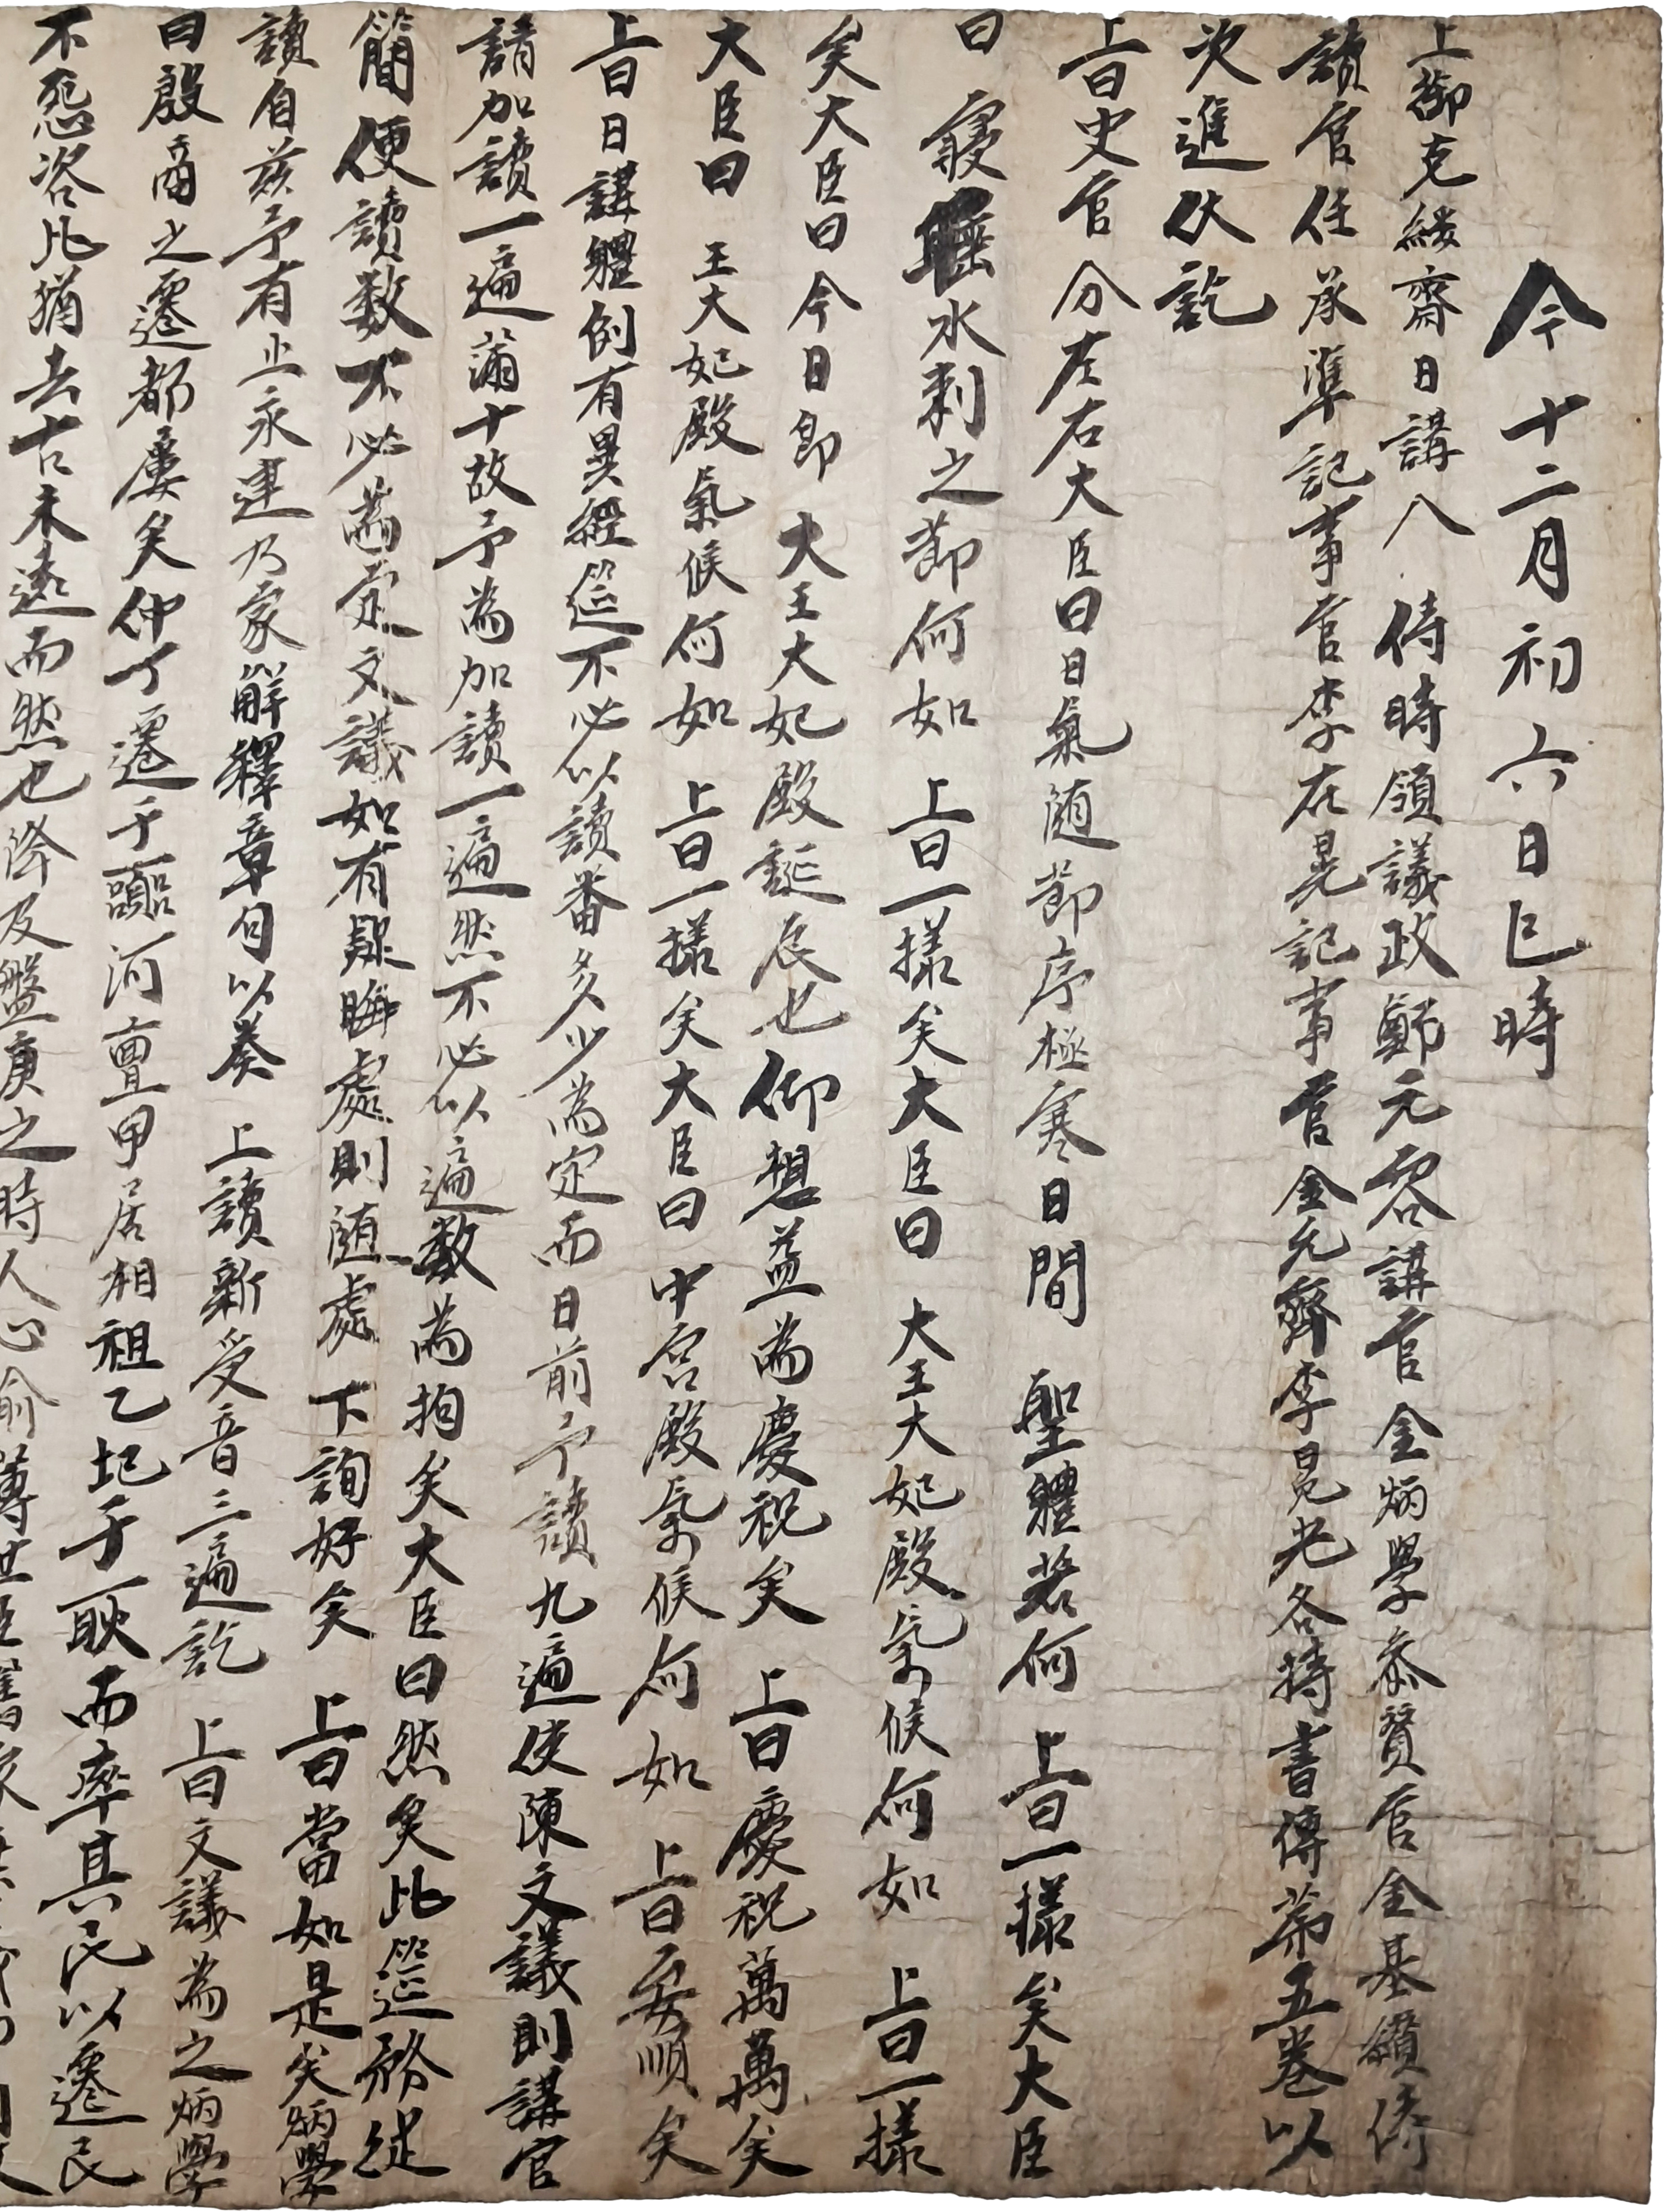 今十二月初六日巳時
上御克綏齋日講入侍時領議政鄭元容講官金炳學參贊官金基纘侍
讀官任承準記事官李在晃記事官金元齊李晃光各持書傳第五卷以
次進伏訖
上曰史官分左右大臣曰日氣隨節序極寒日間 聖體若何 上曰一樣矣大臣
曰 寢睡水剌之節何如 上曰一樣矣大臣曰 大王大妃殿氣候何如 上曰一樣
矣大臣曰今日卽 大王大妃殿誕辰也仰想益爲慶祝矣 上曰慶祝萬萬矣
大臣曰 王大妃殿氣候何如 上曰一樣矣大臣曰 中宮殿氣候何如 上曰安順矣
上曰日講軆例有異經筵不必以讀番多少爲定而日前予讀九遍使陳文議則講官
請加讀一遍滿十故予爲加讀一遍然不必以遍數爲拘矣大臣曰然矣此筵務從
簡便讀數不必爲定文議如有疑晦處則隨處 下詢好矣 上曰當如是矣炳學
讀自玆予有止永建乃家解釋章句以奏 上讀新受音三遍訖 上曰文議爲之炳學
曰殷商之遷都屢矣仲丁遷于囂河亶甲居相祖乙圮于耿而率其民以遷民
不怨咨比猶去古未遠而然也降及盤庚之時人心渝薄世臣舊家